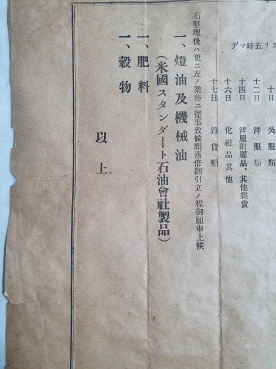 ヨリ五時マデ
十日 呉服類
十二日 洋服類
十四日 洋服附属品、其他雑貨
十六日 化粧品其他
十七日 雑貨類
右整理後ハ更ニ左ノ業務ニ從事致候間舊倍御引立ノ程御願申上候
一、燈油及機械油
(米國スタンダート石油會社製品)
一、肥料
一、穀物
以上